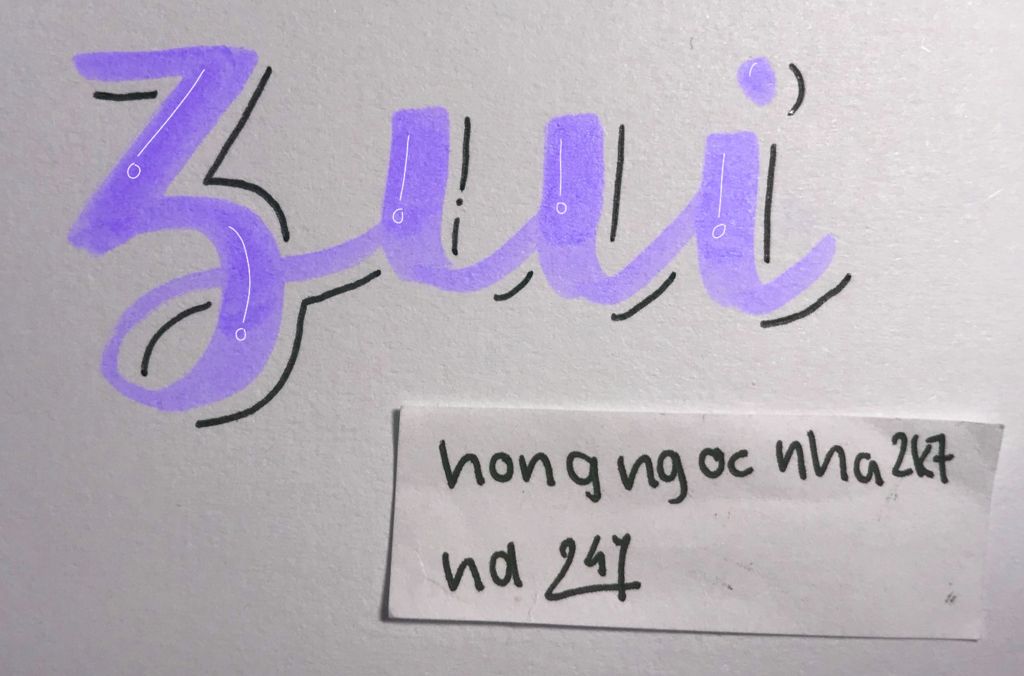 Zuui
hongngocnha2k7
nd 247